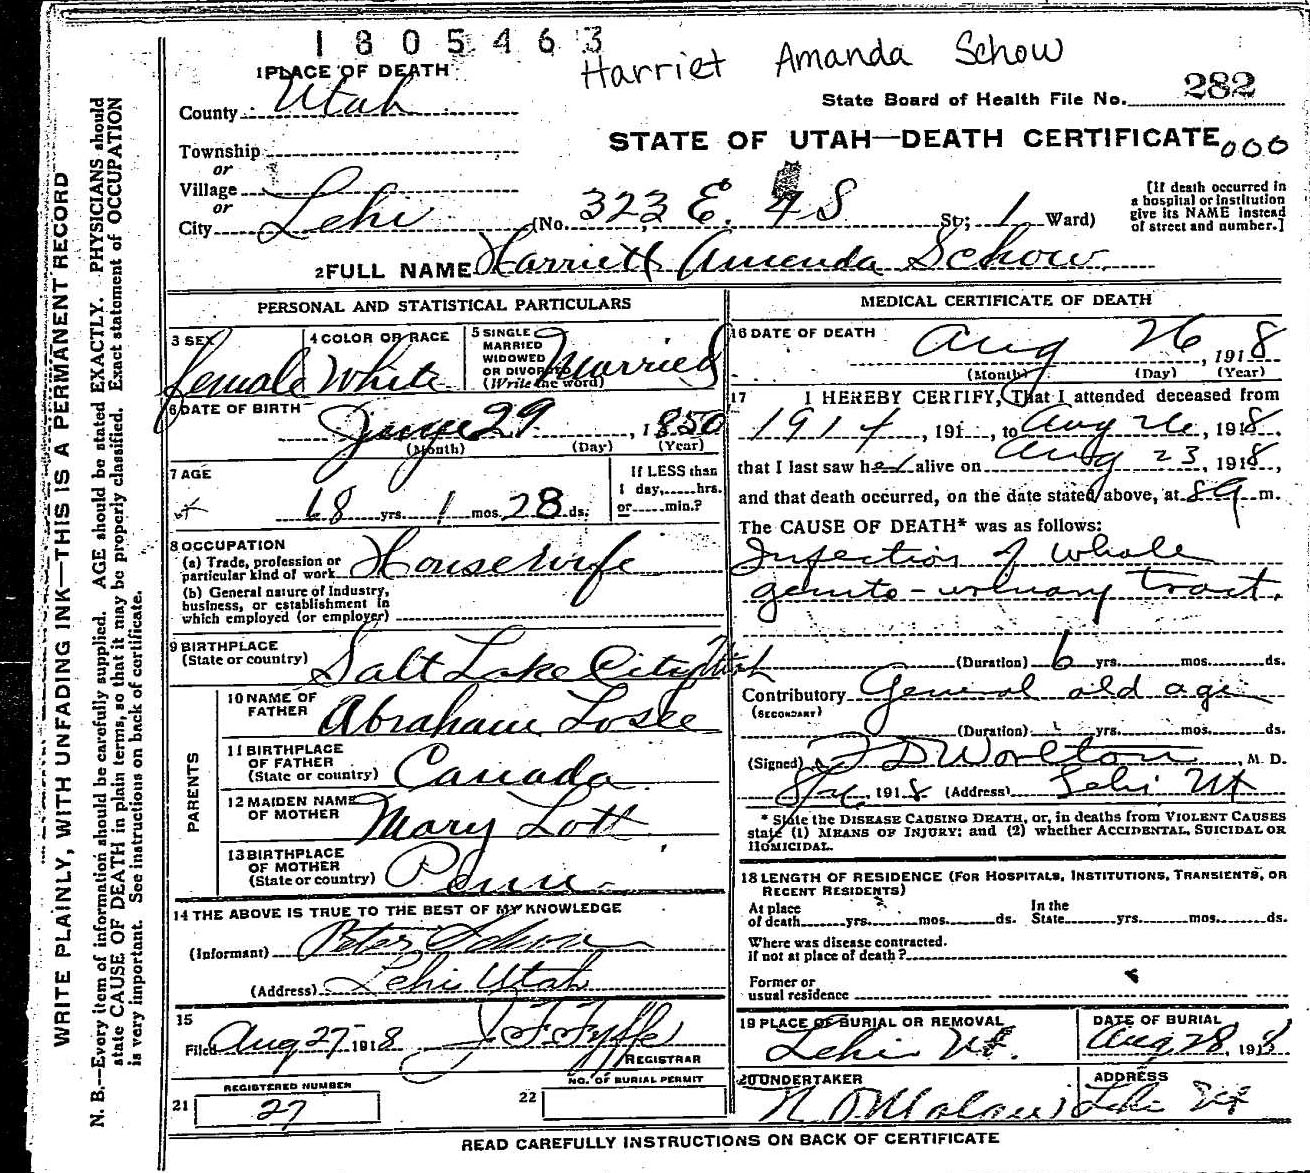 1 8 0 5 4 6 3
Harriet Amanda Schow
1 PLACE OF DEATH
County Utah
State Board of Health File No. 282
Township
or
Village
or
City Lehi
STATE OF UTAH—DEATH CERTIFICATE 000
(No. 323 E. 4 S St; 1 Ward)
[If death occurred in
a hospital or institution
give its NAME instead
of street and number.]
2 FULL NAME Harriett Amenda Schow
PERSONAL AND STATISTICAL PARTICULARS
3 SEX female
4 COLOR OR RACE White
5 SINGLE
MARRIED
WIDOWED
OR DIVORCED
(Write the word) Married
6 DATE OF BIRTH
29, 1850
(Month) (Day) (Year)
7 AGE
68 yrs. 1 mos. 28 ds.
If LESS than
1 day,......hrs.
or......min.?
8 OCCUPATION
(a) Trade, profession or
particular kind of work Housewife
(b) General nature of Industry,
business, or establishment in
which employed (or employer)
9 BIRTHPLACE
(State or country) Salt Lake City Utah
PARENTS
10 NAME OF
FATHER Abraham Losee
11 BIRTHPLACE
OF FATHER
(State or country) Canada
12 MAIDEN NAME
OF MOTHER Mary Lott
13 BIRTHPLACE
OF MOTHER
(State or country) Penn.
14 THE ABOVE IS TRUE TO THE BEST OF MY KNOWLEDGE
(Informant) Peter Schow
(Address) Lehi Utah
15
Filed Aug 27 1918 J F Fyffe
REGISTRAR
REGISTERED NUMBER
21 27
NO. OF BURIAL PERMIT
22
MEDICAL CERTIFICATE OF DEATH
16 DATE OF DEATH
Aug 26, 1918
(Month) (Day) (Year)
17 I HEREBY CERTIFY, That I attended deceased from
1914, 191 , to Aug 26, 1918,
that I last saw her alive on Aug 23, 1918,
and that death occurred, on the date stated above, at 8 a m.
The CAUSE OF DEATH* was as follows:
Infection of whole
genito-urinary tract.
(Duration) 6 yrs. mos. ds.
Contributory General old age
(SECONDARY)
(Duration) yrs. mos. ds.
(Signed) F D Worlton, M. D.
1918 (Address) Lehi Ut
* State the DISEASE CAUSING DEATH, or, in deaths from VIOLENT CAUSES
state (1) MEANS OF INJURY; and (2) whether ACCIDENTAL, SUICIDAL OR
HOMICIDAL.
18 LENGTH OF RESIDENCE (FOR HOSPITALS, INSTITUTIONS, TRANSIENTS, OR
RECENT RESIDENTS)
At place In the
of death yrs. mos. ds. State yrs. mos. ds.
Where was disease contracted.
if not at place of death?
Former or
usual residence
19 PLACE OF BURIAL OR REMOVAL
Lehi Ut.
DATE OF BURIAL
Aug 28, 1918
20 UNDERTAKER
ADDRESS
Lehi Ut
READ CAREFULLY INSTRUCTIONS ON BACK OF CERTIFICATE
WRITE PLAINLY, WITH UNFADING INK—THIS IS A PERMANENT RECORD
N. B.—Every item of information should be carefully supplied. AGE should be stated EXACTLY. PHYSICIANS should
state CAUSE OF DEATH in plain terms, so that it may be properly classified. Exact statement of OCCUPATION
is very important. See instructions on back of certificate.